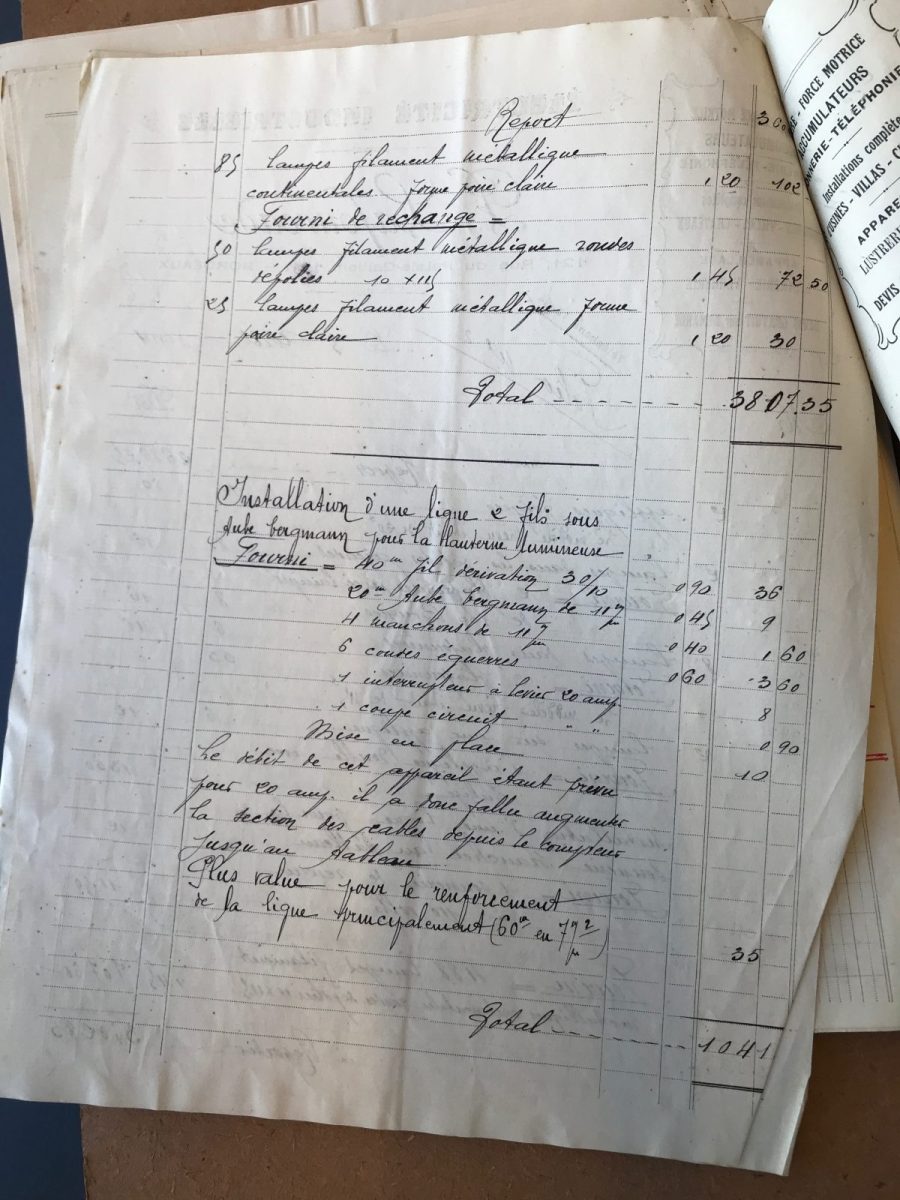 Report 360
85 lampes filament métallique
continentales forme poire claire 1 20 102
Fourni de rechange =
50 lampes filament métallique rondes
dépolies 10 x 115 1 45 72 50
25 lampes filament métallique forme
poire claire 1 20 30
Total 3807 35
Installation d'une ligne 2 fils sous
Tube bergmann pour la lumineuse
Fourni = 40m fil dérivation 30/10 0 90 36
20m Tube bergmann de 11 0 45 9
4 manchons de 11 0 40 1 60
6 coudes équerres 0 60 3 60
1 interrupteur à levier 20 amp. 8
1 coupe circuit " " 0 90
Mise en place 10
Le débit de cet appareil étant prévu
pour 20 amp. il a donc fallu augmenter
la section des cables depuis le compteur
jusqu'au Tableau
Plus value pour le renforcement
de la ligne principalement (60m en 7 35
Total 104 1
FORCE MOTRICE
ACCUMULATEURS
TÉLÉPHONIE
Installations complètes
USINES - VILLAS - CH
APPARE
LUSTRERIE
DEVIS